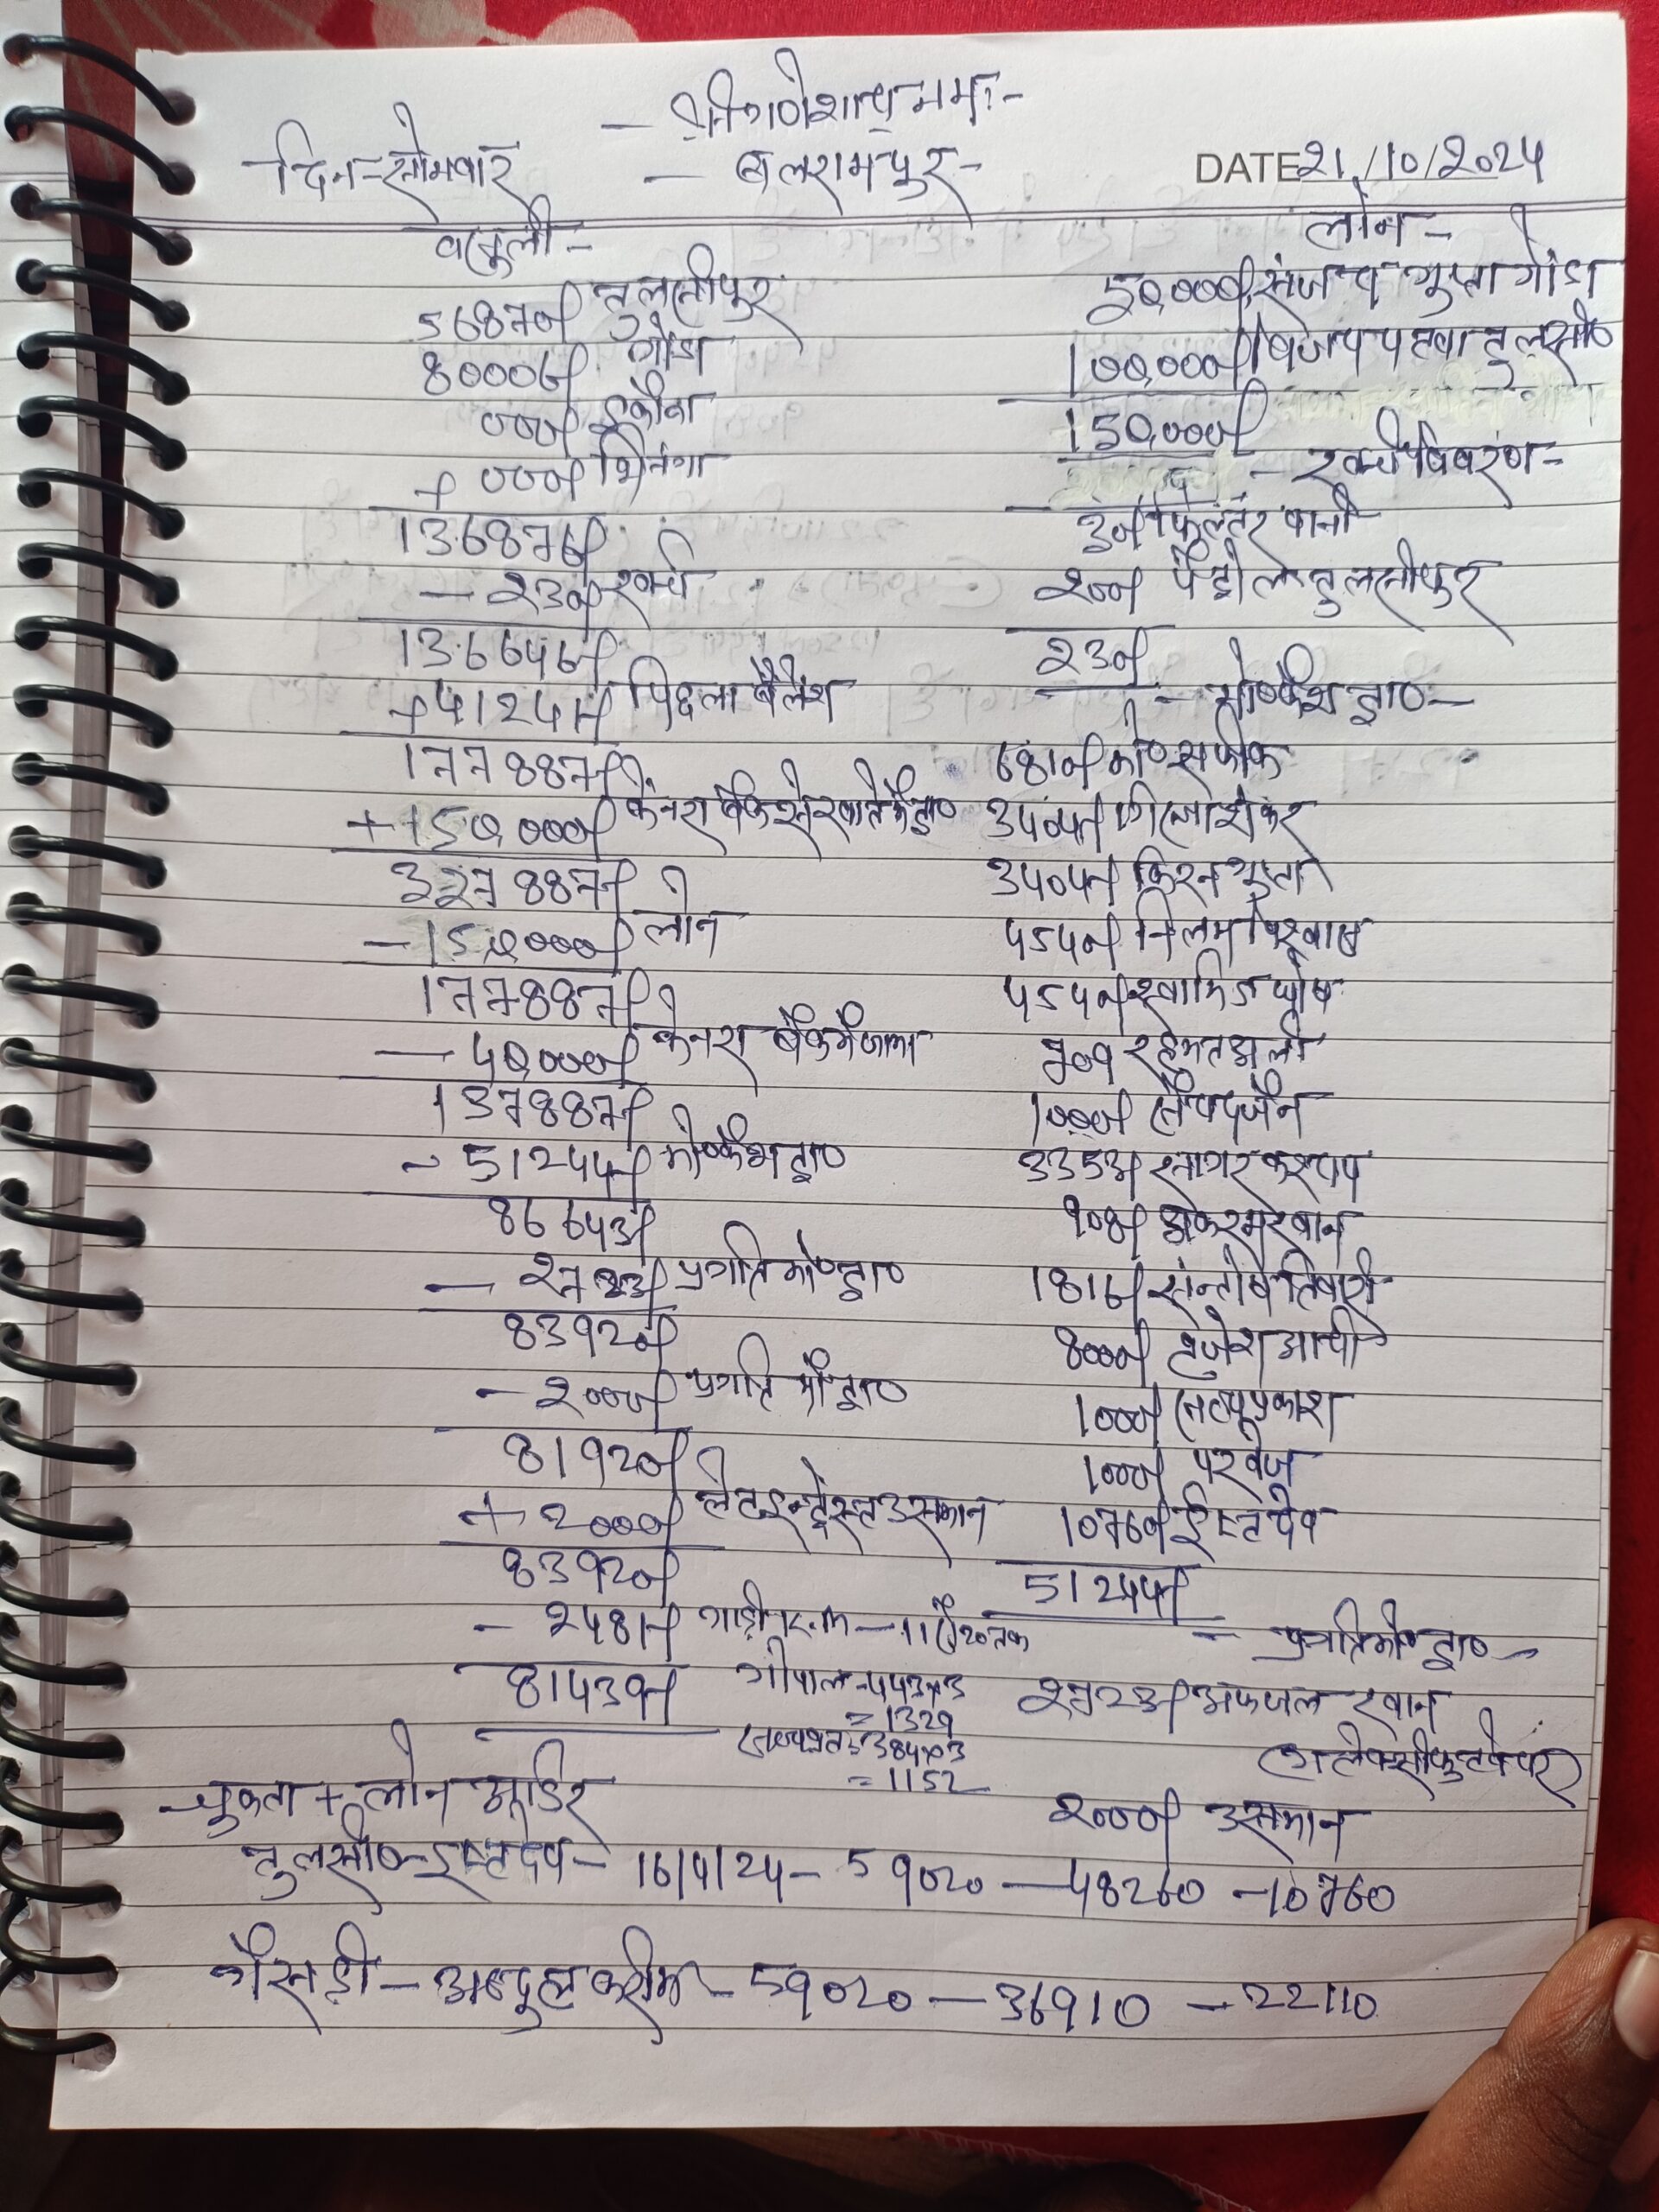 - श्री गणेशाय नमः -
दिन - सोमवार
- बलरामपुर -
DATE 21/10/2024
वसुली -
56870/ तुलसीपुर
80006/ गोंडा
000/ इकौना
+ 000/ भिनगा
136876/
- 230/ खर्च
136646/
+ 41241/ पिछला बैलेंश
177887/
+ 150,000/ केनरा बैंक से खाते में ट्रा०
327887/
- 150,000/ लोन
177887/
- 40,000/ केनरा बैंक में जमा
137887/
- 51244/ मो०कैश ट्रा०
86643/
- 2723/ प्रगति मो० ट्रा०
83920/
- 2000/ प्रगति मो० ट्रा०
81920/
+ 2000/ लेट इन्ट्रेस्ट उसमान
83920/
- 2481/ गाड़ी K.M - 11 से 20 तक
81439/
गोपाल - 443x3
= 1329
384x3
= 1152
लोन -
50,000/ संजय गुप्ता गोंडा
100,000/ विजय पहवा तुलसी०
150,000/
- खर्च विवरण -
30/ फिल्टर पानी
200/ पेट्रोल तुलसीपुर
230/
- मो०कैश ट्रा० -
6810/ मो० सफीक
3404/ गिरजा शंकर
3404/ किरन गुप्ता
4540/ निलम विश्वास
4540/ स्वामिज घोष
909 रहमत अली
1000/ जैन
3353/ सागर कश्यप
908/ अकरम खान
1816/ संन्तोष तिवारी
8000/ ब्रजेश आर्या
1000/ सत्यप्रकाश
1000/ परवेज
10760/ ईष्टदेव
51244/
- प्रगति मो० ट्रा० -
2723/ अफजल खान
2000/ उसमान
चुकता + लोन आर्डर
तुलसी० - इष्टदेव - 16/4/24 - 59020 - 48260 - 10760
गैसड़ी - अब्दुल करीम - 59020 - 36910 - 22110